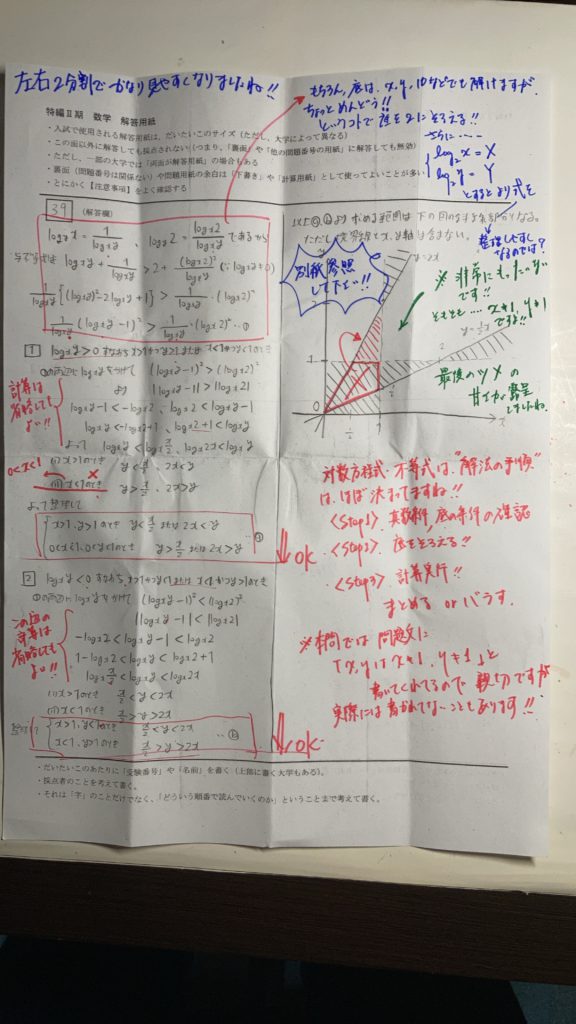 左右2分割でかなり見やすくなりましたね!!
もちろん、底は、x, y, 10などでも解けますが、
ちょっとめんどう!!
底を2にそろえる!!
さらに……
log₂x = X
log₂y = Y
とするとより式を
整理しやすく
なるのでは?
特編Ⅱ期 数学 解答用紙
・入試で使用される解答用紙は、だいたいこのサイズ(ただし、大学によって異なる)
・この面以外に解答しても採点されない(つまり、「裏面」や「他の問題番号の用紙」に解答しても無効)
・ただし、一部の大学では「両面が解答用紙」の場合もある
・裏面(問題番号は関係ない)や問題用紙の余白は「下書き」や「計算用紙」として使ってよいことが多い
・とにかく【注意事項】をよく確認する
39 (解答欄)
log_y x = 1/log_x y , log_y 2 = log_x 2/log_x y であるから
与不等式は log_x y + 1/log_x y > 2 + (log_x 2)²/log_x y (∵ log_x y ≠ 0)
1/log_x y {(log_x y)² - 2log_x y + 1} > 1/log_x y ・(log_x 2)²
1/log_x y (log_x y - 1)² > 1/log_x y ・(log_x 2)² …①
1 log_x y > 0 すなわち x>1かつy>1または x<1かつy<1のとき
①の両辺に log_x y をかけて (log_x y - 1)² > (log_x 2)²
より |log_x y - 1| > |log_x 2|
log_x y - 1 < -log_x 2 , log_x 2 < log_x y - 1
log_x y < -log_x 2 + 1 , log_x 2 + 1 < log_x y
よって log_x y < log_x x/2 , log_x 2x < log_x y
(i) x>1のとき y < x/2 , 2x < y
(ii) x<1のとき y > x/2 , 2x > y
0<x<1
計算は
省略しても
よい!!
よって整理して
x>1, y>1のとき y < x/2 または 2x < y
0<x<1, 0<y<1のとき y > x/2 または 2x > y …ⓐ
OK
2 log_x y < 0 すなわち x>1かつy<1または x<1かつy>1のとき
①の両辺に log_x y をかけて (log_x y - 1)² < (log_x 2)²
|log_x y - 1| < |log_x 2|
-log_x 2 < log_x y - 1 < log_x 2
1 - log_x 2 < log_x y < log_x 2 + 1
log_x x/2 < log_x y < log_x 2x
(i) x>1のとき x/2 < y < 2x
(ii) x<1のとき x/2 > y > 2x
この辺の
計算は
省略しても
よい!!
整理して
x>1, y<1のとき x/2 < y < 2x
x<1, y>1のとき x/2 > y > 2x …ⓑ
OK
以上ⓐ,ⓑより求める範囲は下の図のような斜線部分となる。
ただし境界線とx,y軸は含まない。
別紙参照
して下さい!!
y=2x
y=1/2x
1
2
0
1/2
1
x
※ 非常にもったいない
です!!
そもそも…… x≠1, y≠1
ですよ!!
最後のツメの
甘さが露呈
しましたね。
対数方程式・不等式は、"解法の手順"
は、ほぼ決まってますね!!
〈Step1〉真数条件、底の条件の確認
〈Step2〉底をそろえる!!
〈Step3〉計算実行!!
まとめる or バラす。
※本問では問題文に
「x, yはx≠1, y≠1」と
書いてくれてるので親切ですが、
実際には書かれてないこともあります!!
・だいたいこのあたりに「受験番号」や「名前」を書く(上部に書く大学もある)。
・採点者のことを考えて書く。
・それは「字」のことだけでなく、「どういう順番で読んでいくのか」ということまで考えて書く。